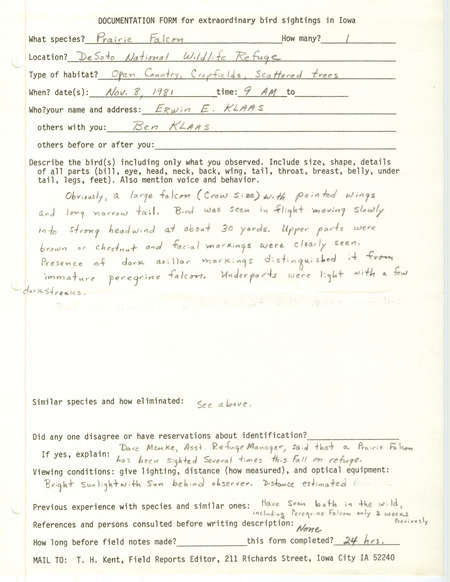 DOCUMENTATION FORM for extraordinary bird sightings in Iowa
What species? Prairie Falcon How many? 1
Location? DeSoto National Wildlife Refuge
Type of habitat? Open Country, Cropfields, Scattered trees
When? date(s): Nov. 8, 1981 time: 9 AM to
Who? your name and address: ERWIN E. KLAAS
others with you: Ben KLAAS
others before or after you:
Describe the bird(s) including only what you observed. Include size, shape, details
of all parts (bill, eye, head, neck, back, wing, tail, throat, breast, belly, under
tail, legs, feet). Also mention voice and behavior.
Obviously, a large falcon (Crow size) with pointed wings
and long narrow tail. Bird was seen in flight moving slowly
into strong headwind at about 30 yards. Upper parts were
brown or chestnut and facial markings were clearly seen.
Presence of dark axillar markings distinguished it from
immature peregrine falcon. Underparts were light with a few
dark streaks.
Similar species and how eliminated: See above.
Did any one disagree or have reservations about identification?
If yes, explain: Dave Menke, Asst. Refuge Manager, said that a Prairie Falcon
has been sighted several times this Fall on refuge.
Viewing conditions: give lighting, distance (how measured), and optical equipment:
Bright sunlight with Sun behind observer. Distance estimated
Previous experience with species and similar ones: Have seen both in the wild,
including Peregrine Falcon only 2 weeks
previously.
References and persons consulted before writing description: None
How long before field notes made? this form completed? 24 hrs.
MAIL TO: T. H. Kent, Field Reports Editor, 211 Richards Street, Iowa City IA 52240